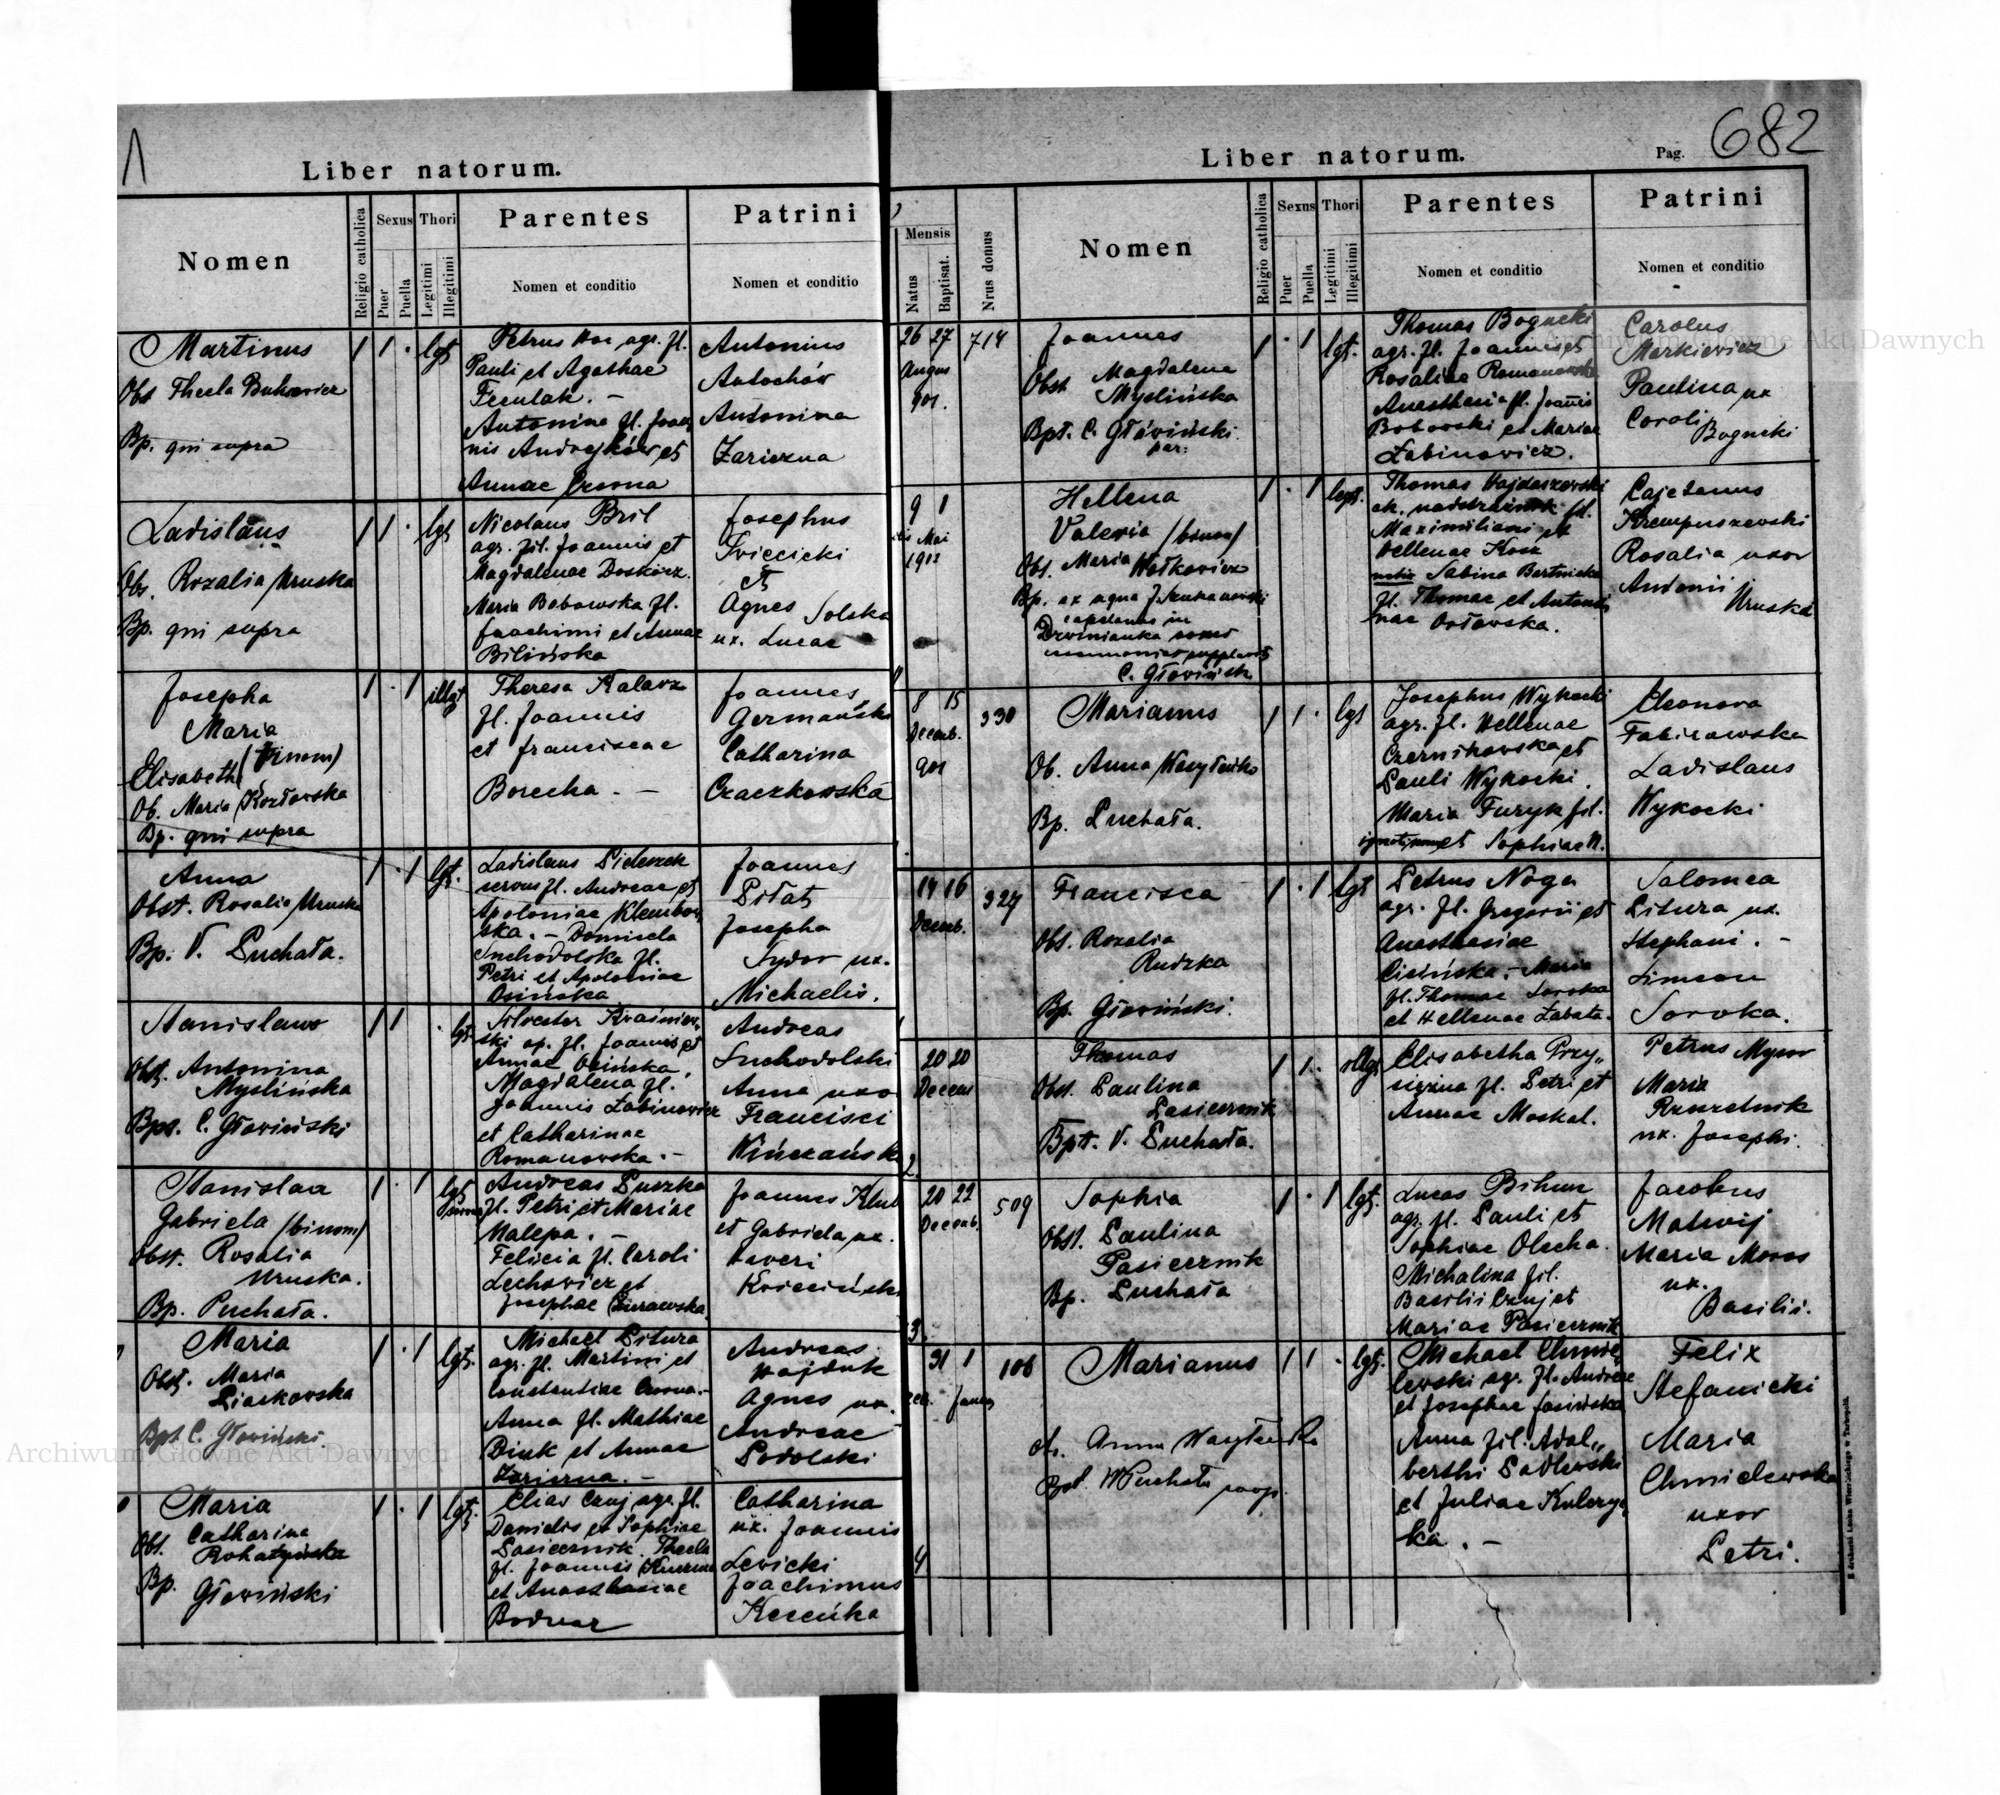 Liber natorum.
Nomen
Religio catholica
Sexus
Puer
Puella
Thori
Legitimi
Illegitimi
Parentes
Nomen et conditio
Patrini
Nomen et conditio
Martinus
Obst Thecla
Bp. qui supra
1 1 . lgt.
Petrus agr. fl.
Pauli et Agathae
Antonina fl. Joan
nis Andrejków et
Annae
Antonius
Antochów
Antonina
Zariczna
Ladislaus
Ob. Rozalia Uruska
Bp. qui supra
1 1 . lgt
Nicolaus Bril
agr. fil. Joannis et
Magdalenae Doskócz.
Maria Bobowska fl.
Joachimi et Annae
Bilińska
Josephus
et
Agnes Solska
ux. Lucae
Josepha
Maria
Elisabeth (trinom)
Ob. Maria Kozłowska
Bp. qui supra
1 . 1 illgt
Theresa Kalarz
fl. Joannis
et Franciscae
Borecka . —
Joannes
Germański
Catharina
Czaczkowska
Anna
Obst. Rosalia Uruska
Bp. V. Puchała.
1 . 1 lgt.
Ladislaus
servus fl. Andreae et
Apoloniae Klembow
ska. — Domicela
Suchodolska fl.
Petri et Apoloniae
Osińska
Joannes
Piłat
Josepha
Sydor ux.
Michaelis.
Stanislaus
Obst. Antonina
Myslińska
Bpt. C. Głowiński
1 1 . lgt
Silvester
ski op. fl. Joannis et
Annae Osińska.
Magdalena fl.
Joannis Łabinowicz
et Catharinae
Romanowska. —
Andreas
Suchodolski
Anna uxor
Francisci
Stanislaa
Gabriela (binom)
Obst. Rosalia
Uruska.
Bp. Puchała.
1 . 1 lgt
Andreas Puszka
fl. Petri et Mariae
Malepa. —
Felicia fl. Caroli
Lechowicz et
Josephae Żurawska
Joannes Klub
et Gabriela ux.
Xaveri
Maria
Obst. Maria
Piaskowska
Bpt C. Głowiński.
1 . 1 lgt.
Michael Pitura
agr. fl. Martini et
Constantiae
Anna fl. Mathiae
et Annae
Zariczna. —
Andreas
Wajduk
Agnes ux.
Andreae
Podolski
Maria
Obt. Catharina
Rohatyńska
Bp. Głowiński
1 . 1 lgt.
Elias Czuj agr. fl.
Danielis et Sophiae
Pasiecznik. Thecla
fl. Joannis
et Anastasiae
Bodnar
Catharina
ux. Joannis
Levicki
Joachimus
Liber natorum.
Pag. 682
Mensis
Natus
Baptisat.
Nrus domus
Nomen
Religio catholica
Sexus
Puer
Puella
Thori
Legitimi
Illegitimi
Parentes
Nomen et conditio
Patrini
Nomen et conditio
26 27
Augus
901.
714
Joannes
Obst. Magdalena
Myslińska
Bpt. C. Głowiński.
par.
1 . 1 lgt.
Thomas Bogucki
agr. fl. Joannis et
Rosaliae Romanowska
Anasthasia fl. Joannis
Bobowski et Mariae
Łabinowicz.
Carolus
Markiewicz
Paulina ux
Caroli
Bogucki
9 1
Mai
1902
Hellena
Valeria (binom)
Obt. Maria Wołkowicz
Bp. ex aqua
capelanus in
C. Głowiński
1 . 1 lgt.
Thomas
Maximiliani et
Hellenae Kosz
Sabina
fl. Thomae et Antoni
nae Orłowska.
Cajetanus
Krempuszewski
Rosalia uxor
Antonii
Uruska
8 15
Decemb.
901
330
Marianus
Ob. Anna Wasyłeńko
Bp. Puchała.
1 1 . lgt
Josephus Wykocki
agr. fl. Hellenae
Czernikowska et
Pauli Wykocki.
Maria Furyk fil.
et Sophiae N.
Eleonora
Ladislaus
Wykocki
14 16
Decemb.
327
Francisca
Obt. Rozalia
Rudzka
Bp. Głowiński.
1 . 1 lgt
Petrus Noga
agr. fl. Gregorii et
Anasthasiae
Cisińska. — Maria
fl. Thomae Soroka
et Hellenae Łabata.
Salomea
Pitura ux.
Stephani. —
Simeon
Soroka.
20 20
Decem
Thomas
Obst. Paulina
Pasiecznik
Bpt. V. Puchała.
1 1 . illgt
Elisabetha Przy„
siężna fl. Petri et
Annae Moskal.
Petrus Mysor
Maria
ux. Josephi.
20 22
Decemb.
509
Sophia
Obst. Paulina
Pasiecznik
Bp. Puchała
1 . 1 lgt.
Lucas Bihun
agr. fl. Pauli et
Sophiae Olecha.
Michalina fil.
Basilii Czuj et
Mariae Pasiecznik
Jacobus
Matwij
Maria Moros
ux.
Basilii.
31 1
106
Marianus
Ob. Anna Wasyłeńko
Bpt. W Puchała
1 1 . lgt.
Michael Chmie„
lewski agr. fl. Andreae
et Josephae Jasińska
Anna fil. Adal„
berthi Sadlewski
et Juliae Kulczyc
ka. —
Felix
Stefanicki
Maria
Chmielewska
uxor
Petri.
Archiwum Główne Akt Dawnych
Archiwum Główne Akt Dawnych